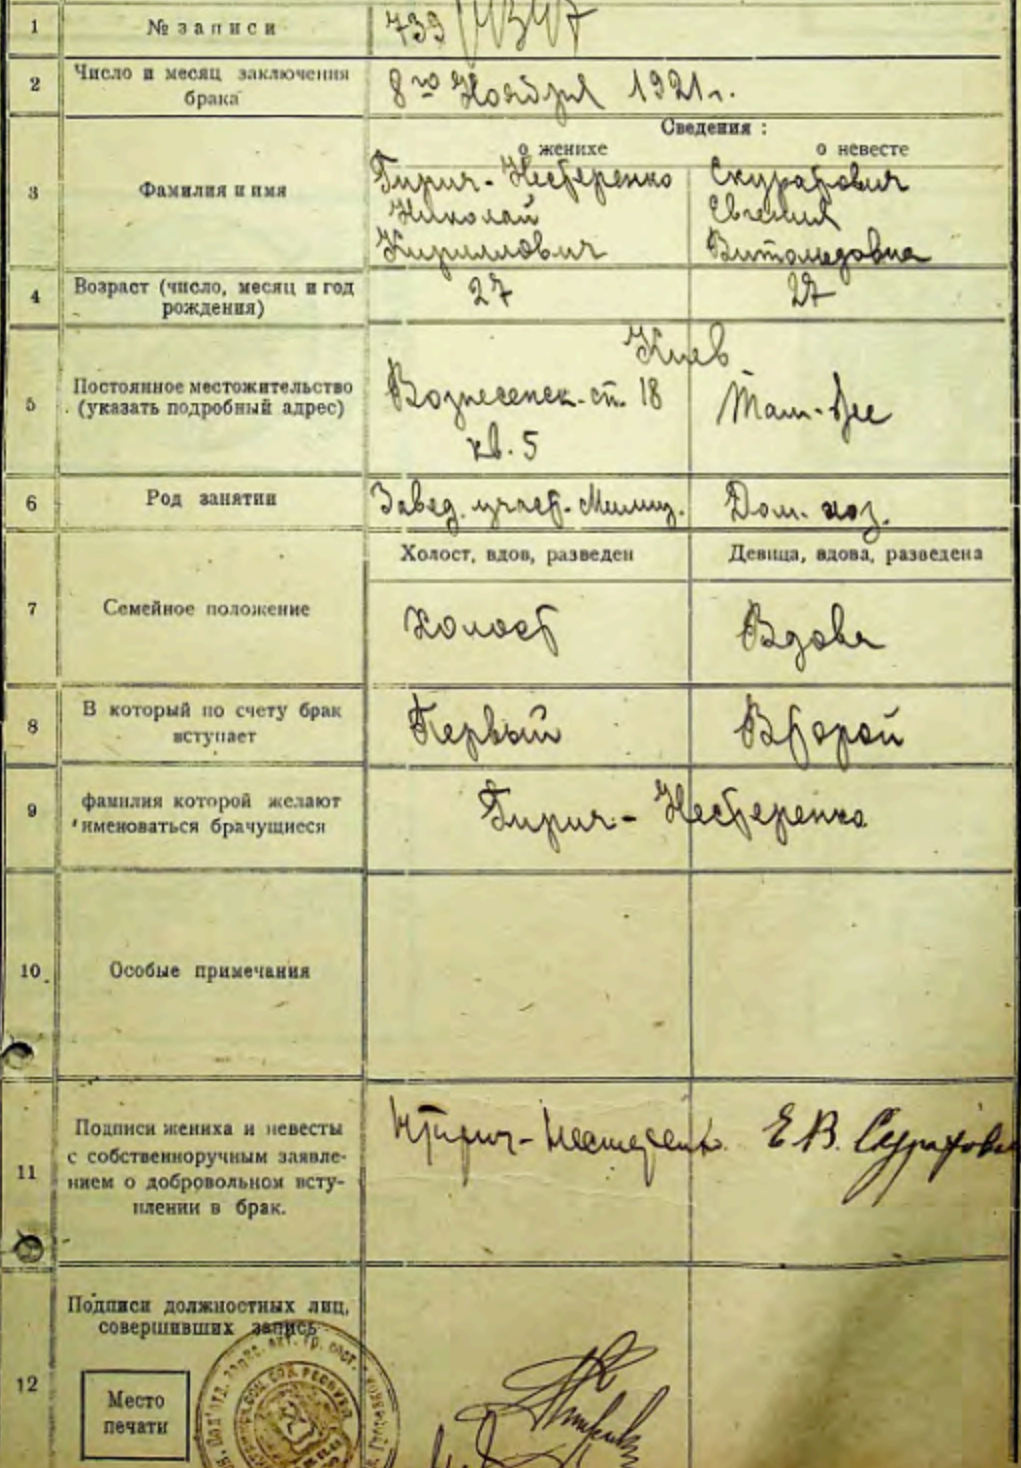 1 № записи 739
2 Число и месяц заключения брака 8го Ноября 1921 г.
Сведения :
о женихе о невесте
3 Фамилия и имя Гирич-Нестеренко Скуратович
Николай Евгения
Кириллович Витольдовна
4 Возраст (число, месяц и год рождения) 27 27
Киев
5 Постоянное местожительство (указать подробный адрес) Вознесенск. сп. 18 Там-же
кв. 5
6 Род занятии Завед. участ. Милиц. Дом. хоз.
Холост, вдов, разведен Девица, вдова, разведена
7 Семейное положение Холост Вдова
8 В который по счету брак вступает Первый Второй
9 фамилия которой желают именоваться брачущиеся Гирич-Нестеренко
10 Особые примечания
11 Подписи жениха и невесты
с собственноручным заявле-
нием о добровольном всту-
плении в брак.
НГирич-Нестеренко Е.В. Скуратович
12 Подписи должностных лиц,
совершивших запись
Место
печати